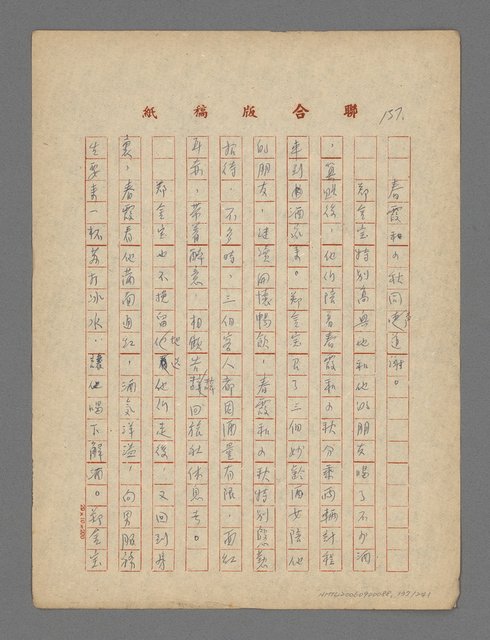 聯合版稿紙
137.
春霞和の秋同聲道謝。
鄭金寶特別高興他和他的朋友喝了不少酒
，算賬後，他們陪着春霞和の秋分乘兩輛計程
車到酒家來。鄭金寶召了三個妙齡酒女陪他
的朋友，繼續開懷暢飲，春霞和の秋特別慇懃
招待。不多時，三個客人都因酒量有限，面紅
耳赤，帶着醉意，相顧告辭回旅社休息去。
鄭金寶也不挽留他他們走後，又回到
裏，春霞看他滿面通紅，酒氣洋溢，向男服務
生要來一杯冰水，讓他喝下解酒。鄭金寶
20×10=200
NMTL20060920088, 137/241